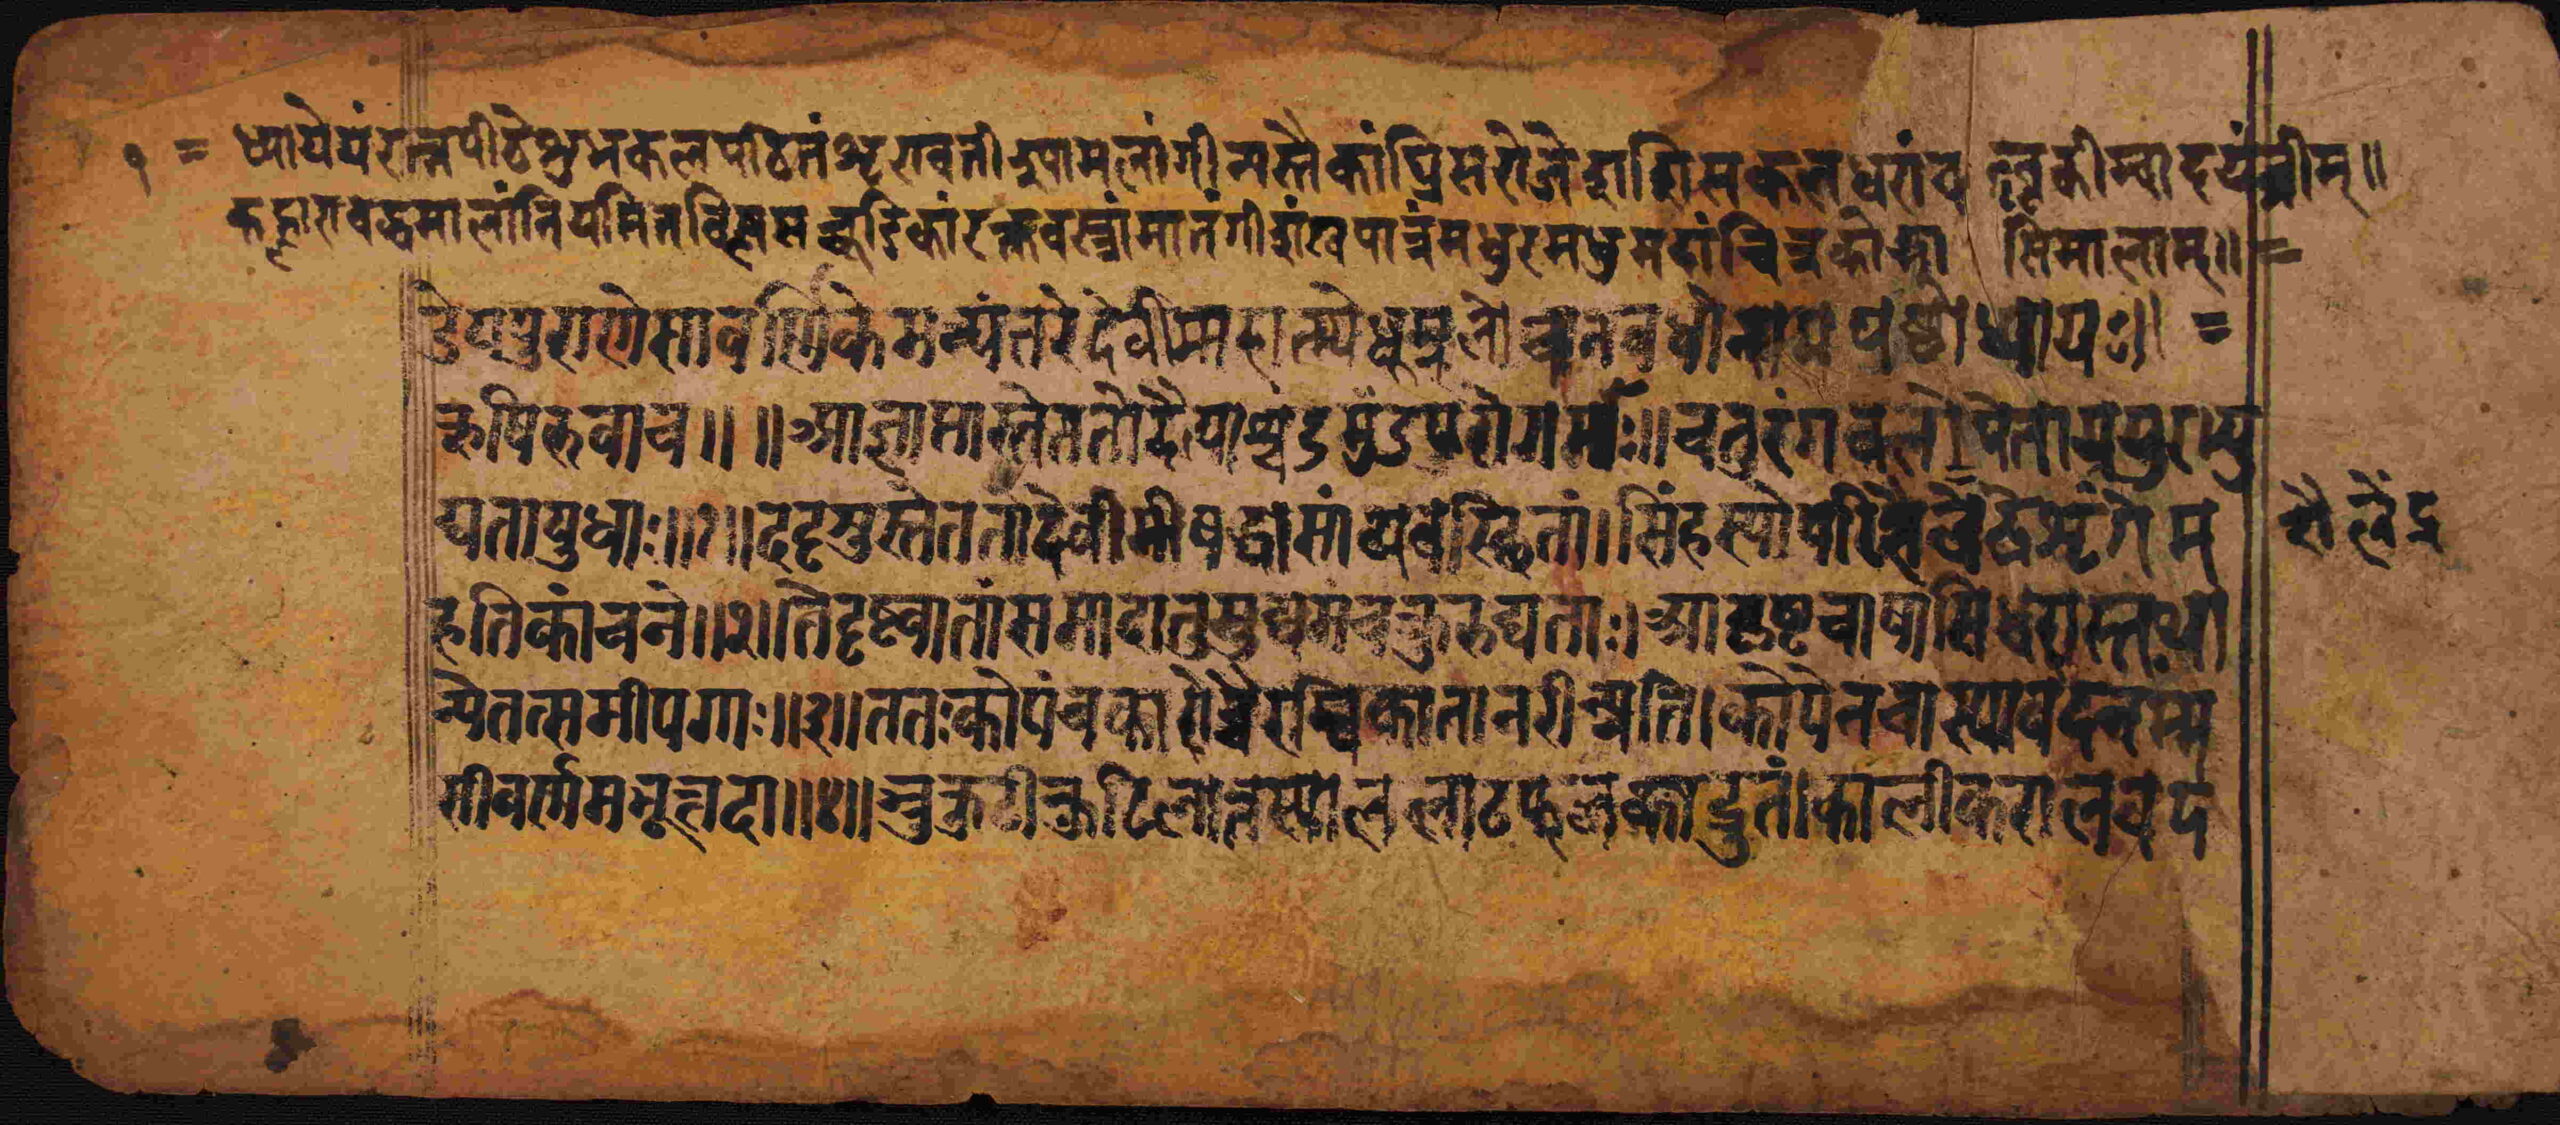 १ = ध्यायेयंरत्नपीठेशुककलपठितंशृण्वतींश्यामलांगींन्यस्तैकांघ्रिंसरोजेशशिशकलधरांवल्लकीम्वादयंतीम्॥
कह्लारावद्धमालांनियमितविलसच्चूडिकांरक्तवस्त्रांमातंगींशंखपात्रंमधुरमधुमदांचित्रकोद्भासिमालाम्॥ =
डेयपुराणेसावर्णिकेमन्वंतरेदेवीमाहात्म्येधूम्रलोचनवधोनामषष्ठोध्यायः॥ =
ऋषिरुवाच॥ ॥आज्ञप्तास्तेततोदैत्याश्चंडमुंडपुरोगमाः॥चतुरंगवलोपेताययुरभ्यु
द्यतायुधाः॥१॥ददृशुस्तेततोदेवीमीषद्धासांव्यवस्थितां।सिंहस्योपरिशैलेंद्रशृंगेम शैलेंद्र
हतिकांचने॥२॥तेदृष्ट्वातांसमादातुमुद्यमंचक्रुरुद्यताः।आकृष्टचापासिधरास्तथा
न्येतत्समीपगाः॥३॥ततःकोपंचकारोच्चैरम्बिकातानरीन्प्रति।कोपेनचास्यावदनम्म
सीवर्णमभूत्तदा॥४॥भ्रुकुटीकुटिलात्तस्याललाटफलकाद्द्रुतं।कालीकरालवद